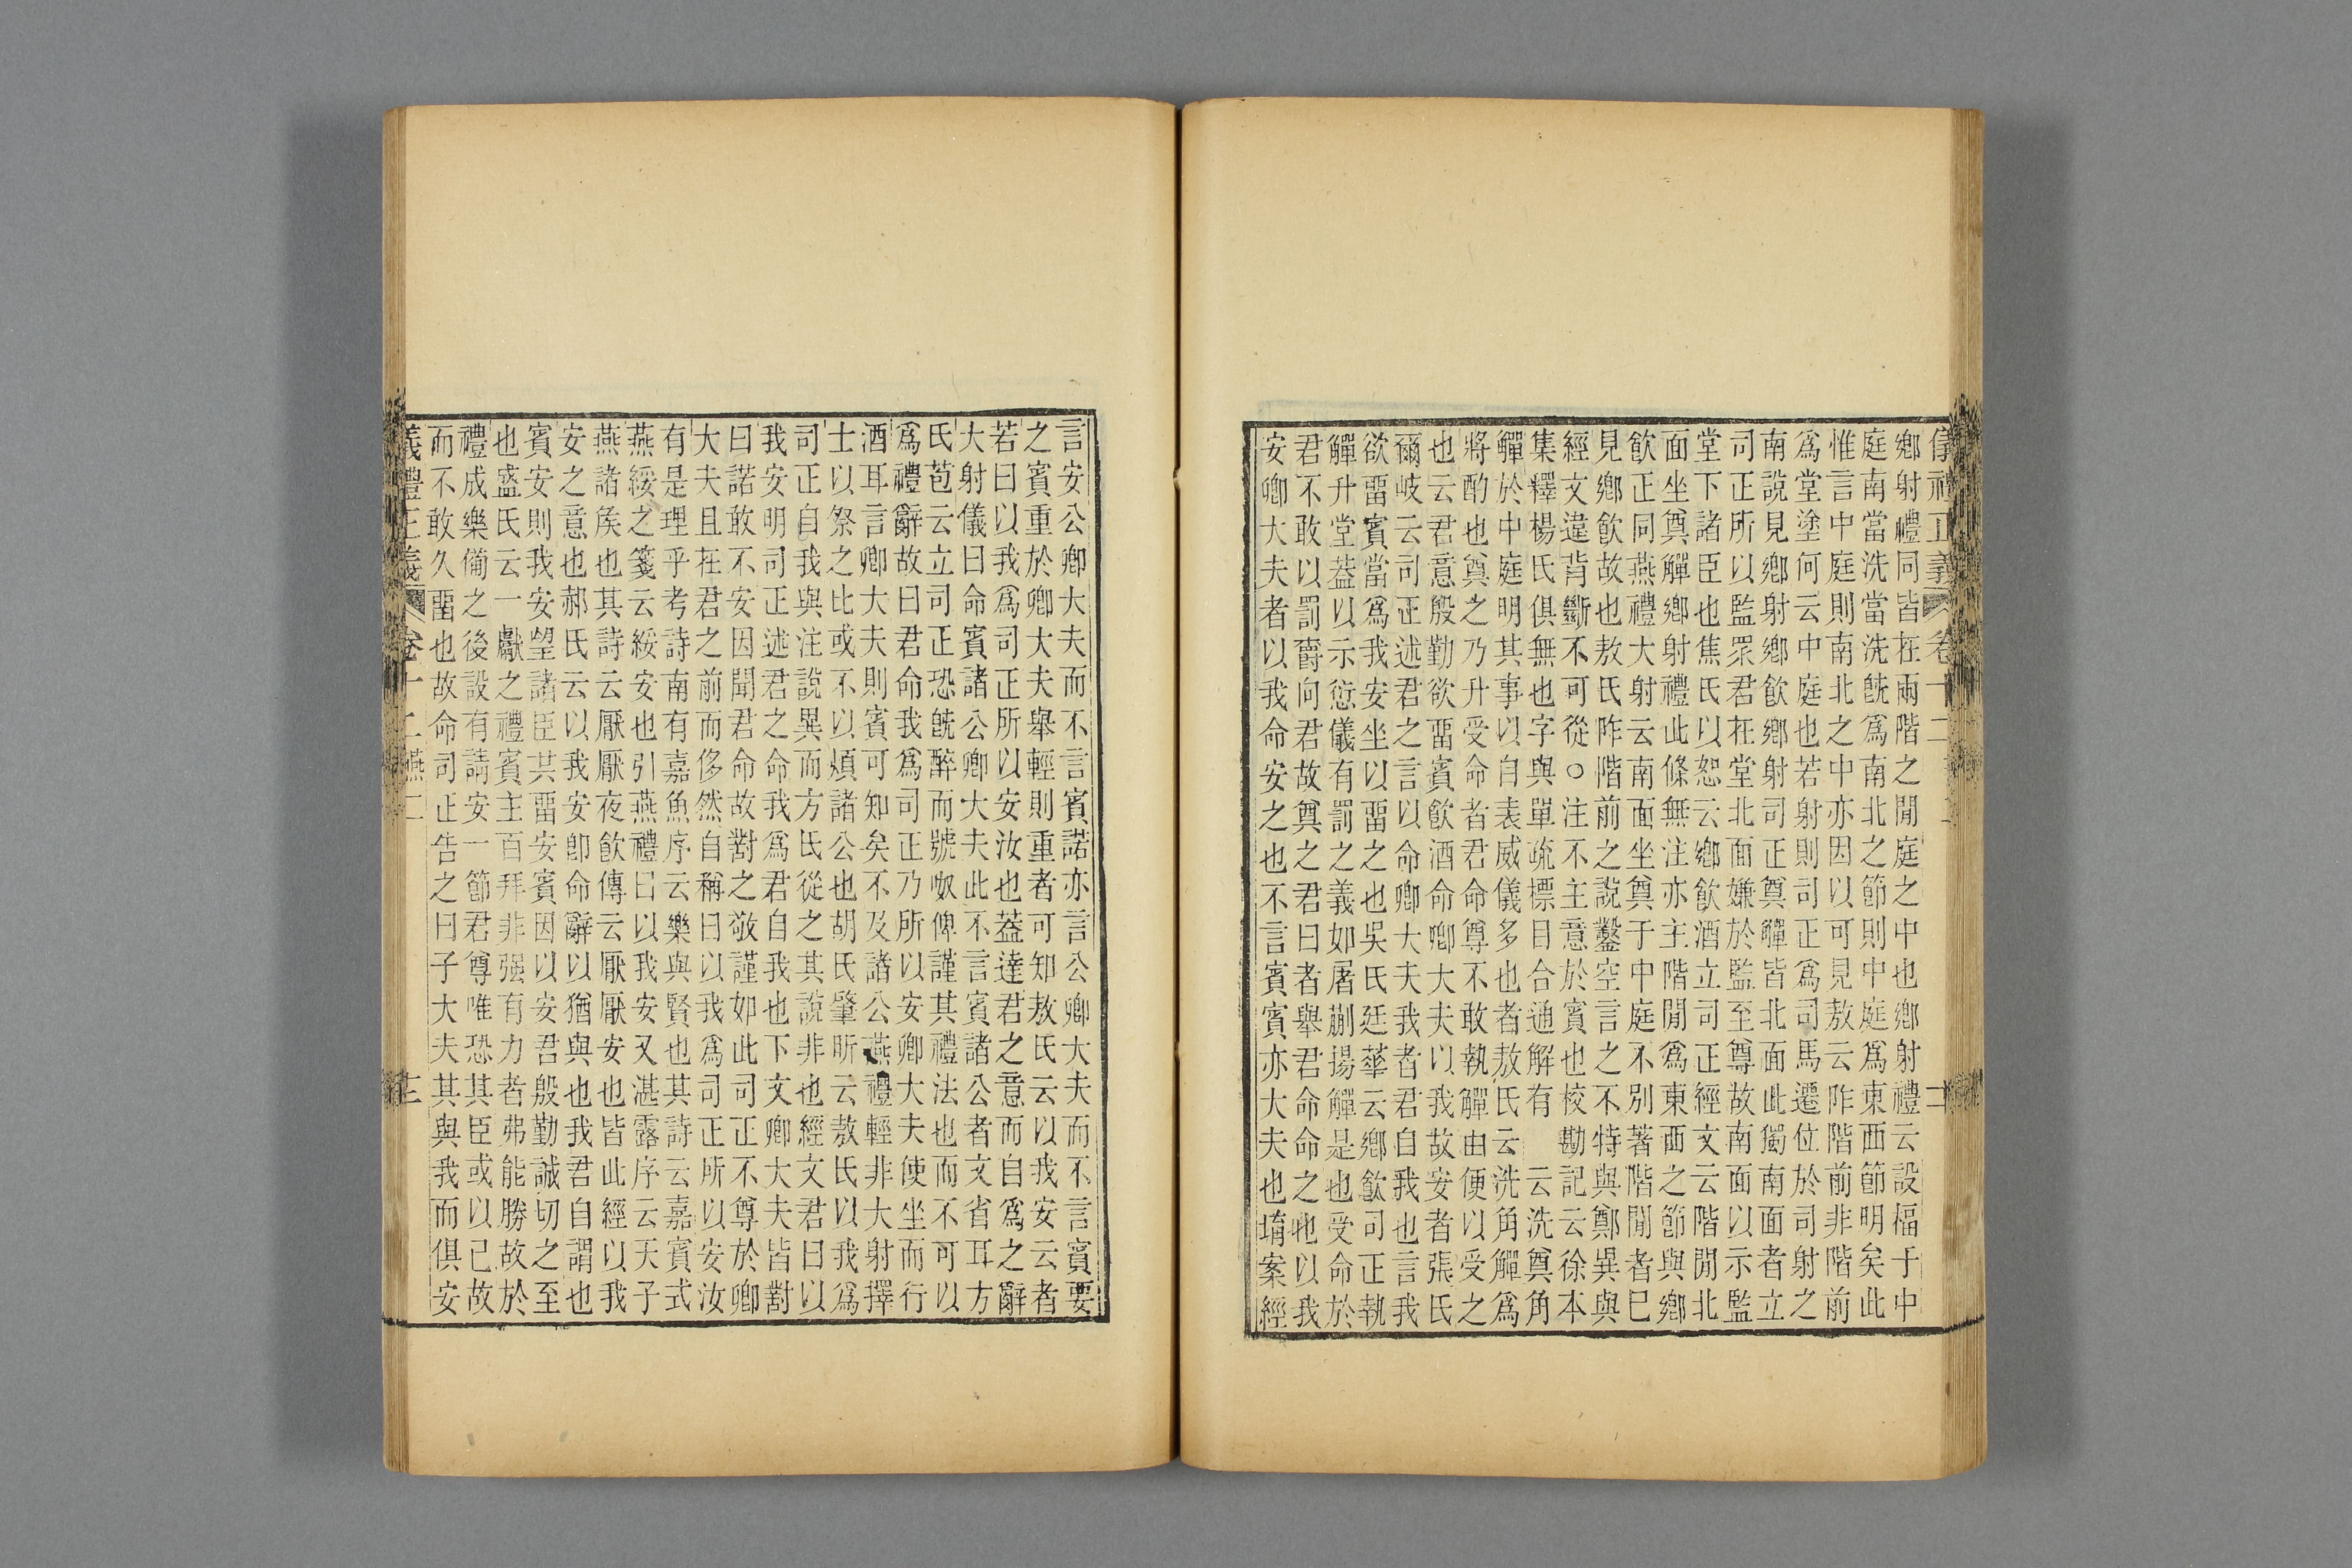 儀禮正義 卷十二 燕二 二
鄉射禮同皆在兩階之閒庭之中也鄉射禮云設楅于中
庭南當洗當洗旣爲南北之節則中庭爲東西節明矣此
惟言中庭則南北之中亦因以可見敖云阼階前非階前
爲堂塗何云中庭也若射則司正爲司馬遷位於司射之
南說見鄉射鄉飲鄉射司正奠觶皆北面此獨南面者立
司正所以監眾君在堂北面嫌於監至尊故南面以示監
堂下諸臣也焦氏以恕云鄉飲酒立司正經文云階閒北
面坐奠觶鄉射禮此條無注亦主階閒爲東西之節與鄉
飲正同燕禮大射云南面坐奠于中庭不別著階閒者已
見鄉飲故也敖氏阼階前之說鑿空言之不特與鄭異與
經文違背斷不可從○注不主意於賓也校勘記云徐本
集釋楊氏俱無也字與單疏標目合通解有 云洗奠角
觶於中庭明其事以自表威儀多也者敖氏云洗角觶爲
將酌也奠之乃升受命者君命尊不敢執觶由便以受之
也云君意殷勤欲畱賓飲酒命卿大夫以我故安者張氏
爾岐云司正述君之言以命卿大夫我者君自我也言我
欲畱賓當爲我安坐以畱之也吳氏廷華云鄉飲司正執
觶升堂蓋以示愆儀有罰之義如屠蒯揚觶是也受命於
君不敢以罰爵向君故奠之君曰者舉君命命之也以我
安卿大夫者以我命安之也不言賓賓亦大夫也堉案經
言安公卿大夫而不言賓諾亦言公卿大夫而不言賓要
之賓重於卿大夫舉輕則重者可知敖氏云以我安云者
若曰以我爲司正所以安汝也蓋達君之意而自爲之辭
大射儀曰命賓諸公卿大夫此不言賓諸公者文省耳方
氏苞云立司正恐旣醉而號呶俾謹其禮法也而不可以
爲禮辭故曰君命我爲司正乃所以安卿大夫使坐而行
酒耳言卿大夫則賓可知矣不及諸公燕禮輕非大射擇
士以祭之比或不以煩諸公也胡氏肇昕云敖氏以我爲
司正自我與注說異而方氏從之其說非也經文君曰以
我安明司正述君之命我爲君自我也下文卿大夫皆對
曰諾敢不安因聞君命故對之敬謹如此司正不尊於卿
大夫且在君之前而侈然自稱曰以我爲司正所以安汝
有是理乎考詩南有嘉魚序云樂與賢也其詩云嘉賓式
燕綏之箋云綏安也引燕禮曰以我安又湛露序云天子
燕諸矦也其詩云厭厭夜飲傳云厭厭安也皆此經以我
安之意也郝氏云以我安卽命辭以猶與也我君自謂也
賓安則我安望諸臣其畱安賓因以安君殷勤誠切之至
也盛氏云一獻之禮賓主百拜非强有力者弗能勝故於
禮成樂備之後設有請安一節君尊唯恐其臣或以己故
而不敢久畱也故命司正告之曰子大夫其與我而俱安
儀禮正義 卷十二 燕二 三